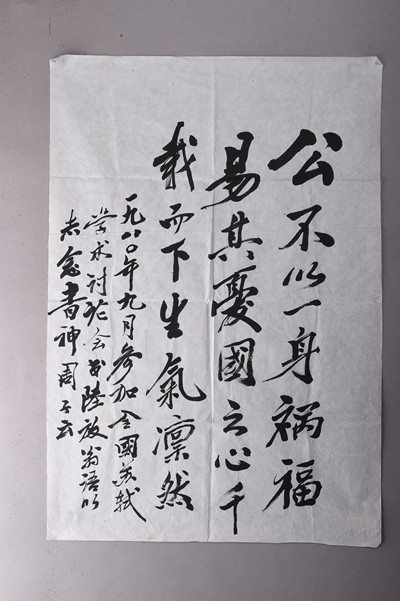 公不以一身祸福
易其憂國之心千
載而下生氣凛然
一九八〇年九月参加全國苏軾
学术讨论会书陸放翁語以
志念青神周子云